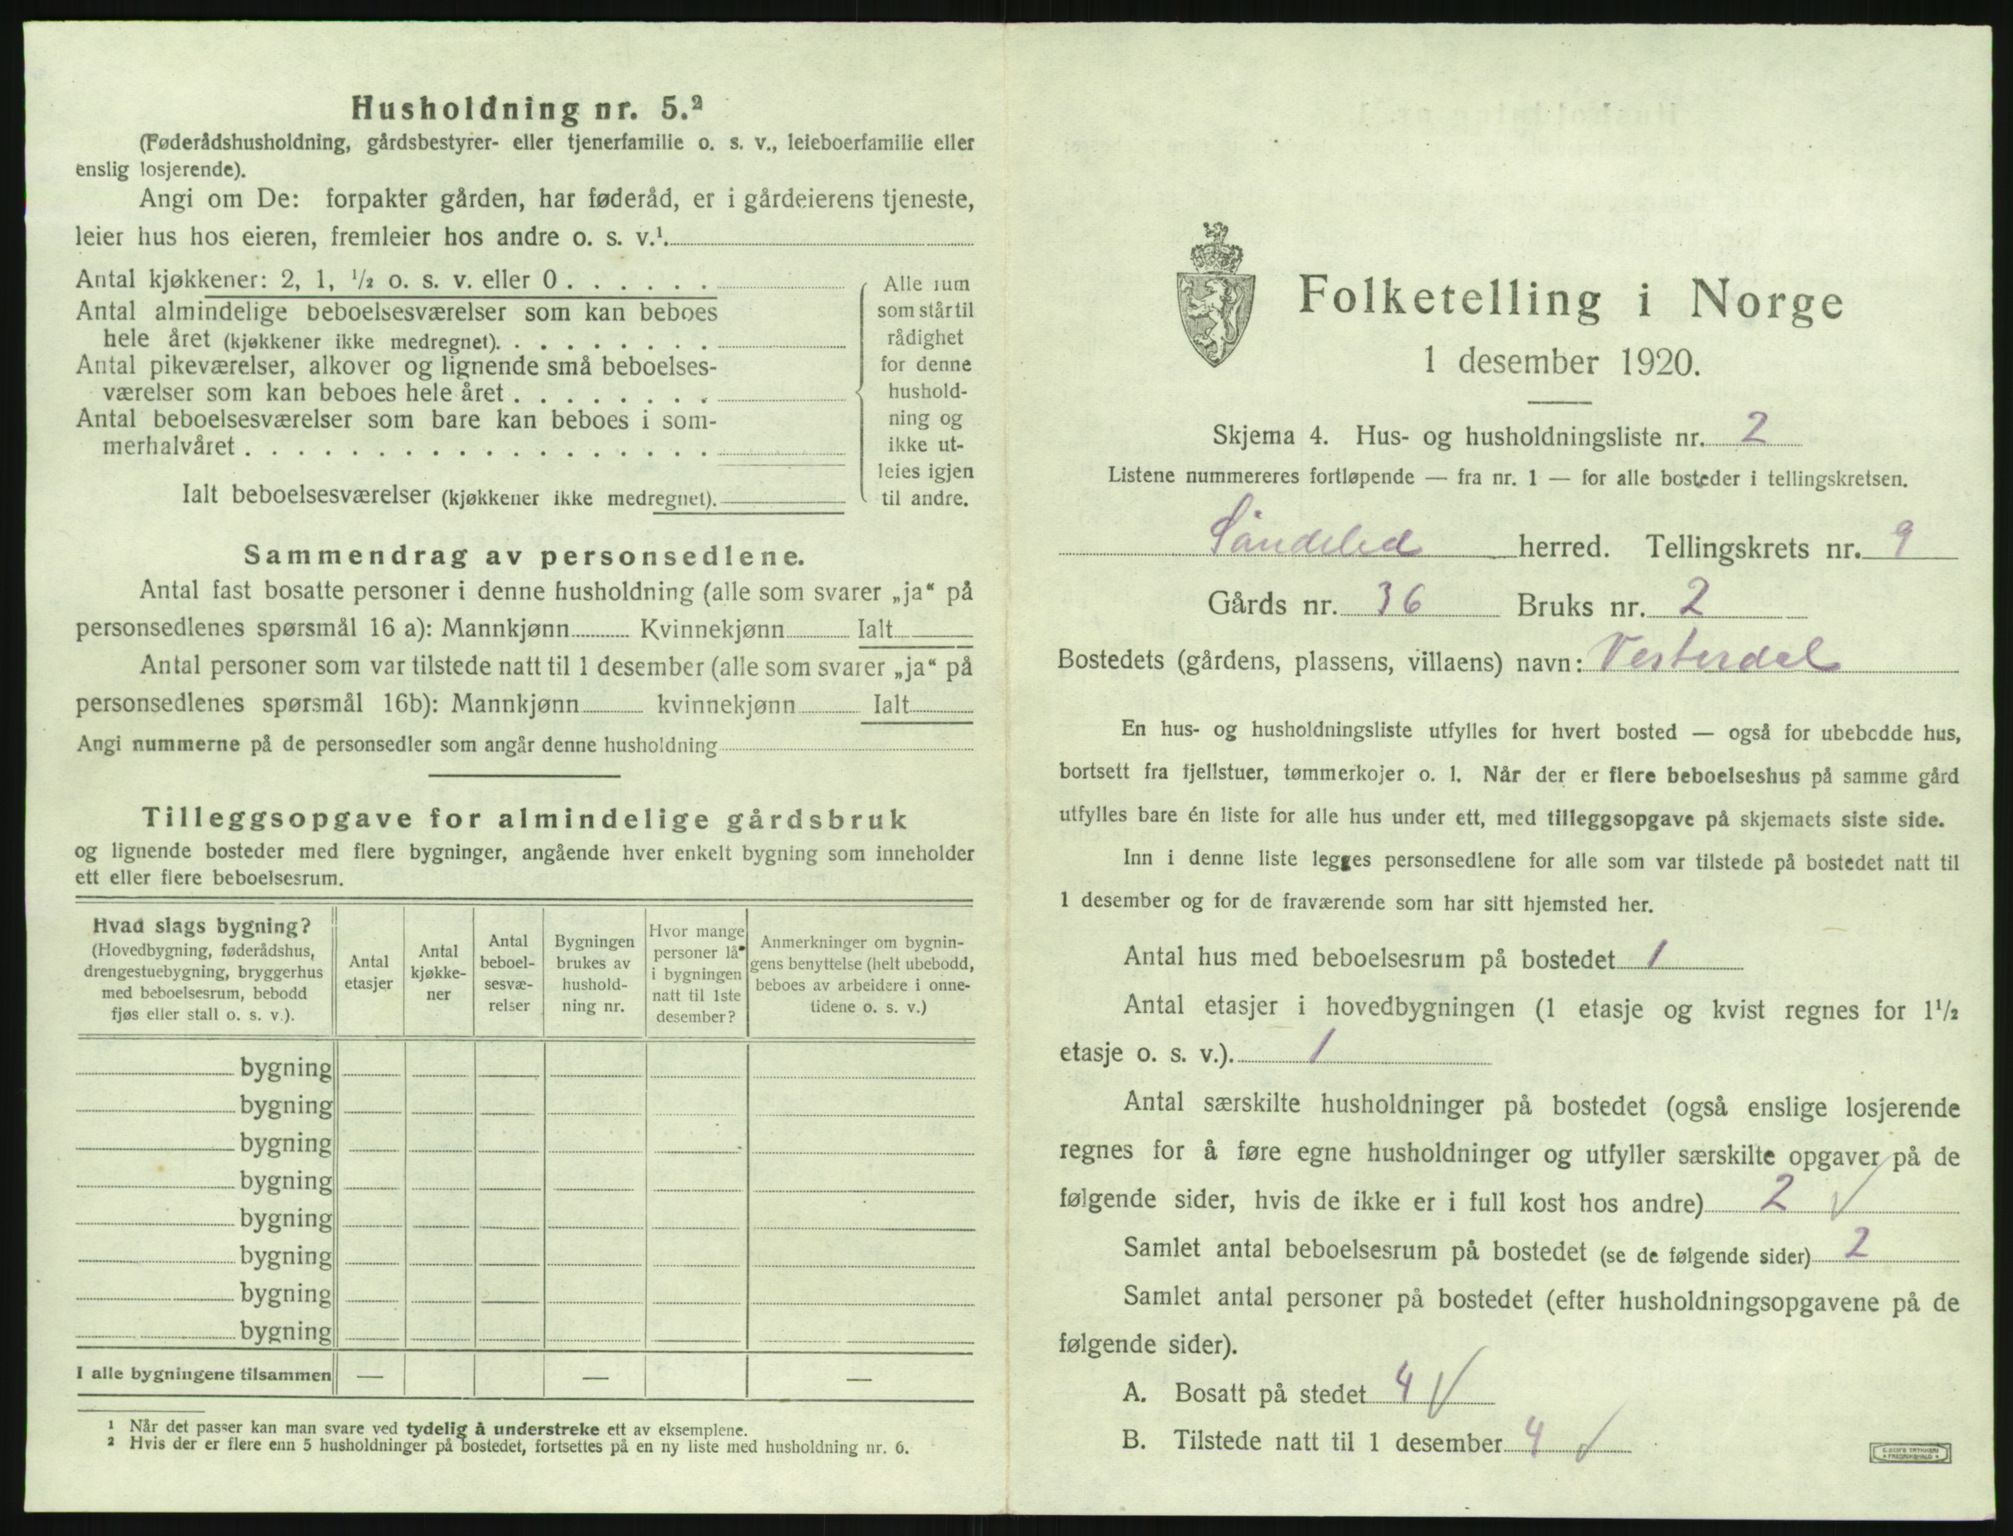 Husholdning nr. 5.²
(Føderådshusholdning, gårdsbestyrer- eller tjenerfamilie o. s. v., leieboerfamilie eller
enslig losjerende).
Angi om De: forpakter gården, har føderåd, er i gårdeierens tjeneste,
leier hus hos eieren, fremleier hos andre o. s. v.¹.
Antal kjøkkener: 2, 1, ½ o. s. v. eller 0
Antal almindelige beboelsesværelser som kan beboes
hele året (kjøkkener ikke medregnet).
Antal pikeværelser, alkover og lignende små beboelses-
værelser som kan beboes hele året
Antal beboelsesværelser som bare kan beboes i som-
merhalvåret
Ialt beboelsesværelser (kjøkkener ikke medregnet).
Alle rum
som står til
rådighet
for denne
hushold-
ning og
ikke ut-
leies igjen
til andre.
Sammendrag av personsedlene.
Antal fast bosatte personer i denne husholdning (alle som svarer „ja“ på
personsedlenes spørsmål 16 a): Mannkjønn Kvinnekjønn Ialt
Antal personer som var tilstede natt til 1 desember (alle som svarer „ja“ på
personsedlenes spørsmål 16b): Mannkjønn kvinnekjønn Ialt
Angi nummerne på de personsedler som angår denne husholdning
Tilleggsopgave for almindelige gårdsbruk
og lignende bosteder med flere bygninger, angående hver enkelt bygning som inneholder
ett eller flere beboelsesrum.
Hvad slags bygning?
(Hovedbygning, føderådshus,
drengestuebygning, bryggerhus
med beboelsesrum, bebodd
fjøs eller stall o. s. v.).
Antal
etasjer
Antal
kjøkke-
ner
Antal
beboel-
sesvæ-
relser
Bygningen
brukes av
hushold-
ning nr.
Hvor mange
personer lå
i bygningen
natt til 1ste
desember?
Anmerkninger om bygnin-
gens benyttelse (helt ubebodd,
beboes av arbeidere i onne-
tidene o. s. v.)
bygning
bygning
bygning
bygning
bygning
bygning
bygning
bygning
I alle bygningene tilsammen — — —
¹ Når det passer kan man svare ved tydelig å understreke ett av eksemplene.
² Hvis der er flere enn 5 husholdninger på bostedet, fortsettes på en ny liste med husholdning nr. 6.
Folketelling i Norge
1 desember 1920.
Skjema 4. Hus- og husholdningsliste nr. 2
Listene nummereres fortløpende — fra nr. 1 — for alle bosteder i tellingskretsen.
Søndeled herred. Tellingskrets nr. 9
Gårds nr. 36 Bruks nr. 2
Bostedets (gårdens, plassens, villaens) navn: Vesterdal
En hus- og husholdningsliste utfylles for hvert bosted — også for ubebodde hus,
bortsett fra fjellstuer, tømmerkojer o. l. Når der er flere beboelseshus på samme gård
utfylles bare én liste for alle hus under ett, med tilleggsopgave på skjemaets siste side.
Inn i denne liste legges personsedlene for alle som var tilstede på bostedet natt til
1 desember og for de fraværende som har sitt hjemsted her.
Antal hus med beboelsesrum på bostedet 1
Antal etasjer i hovedbygningen (1 etasje og kvist regnes for 1½
etasje o. s. v.). 1
Antal særskilte husholdninger på bostedet (også enslige losjerende
regnes for å føre egne husholdninger og utfyller særskilte opgaver på de
følgende sider, hvis de ikke er i full kost hos andre) 2
Samlet antal beboelsesrum på bostedet (se de følgende sider) 2
Samlet antal personer på bostedet (efter husholdningsopgavene på de
følgende sider).
A. Bosatt på stedet 4
B. Tilstede natt til 1 desember 4